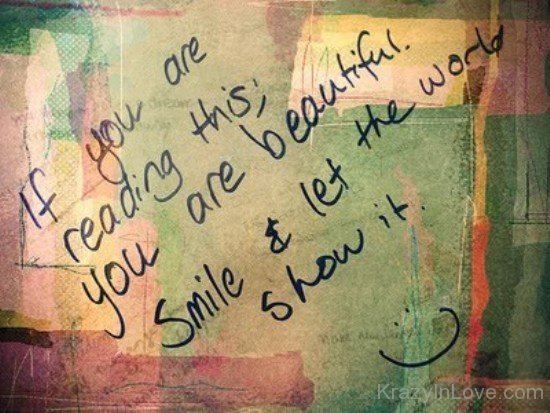 If you are
reading this;
you are beautiful.
Smile & let the world
show it.
KrazyInLove.com